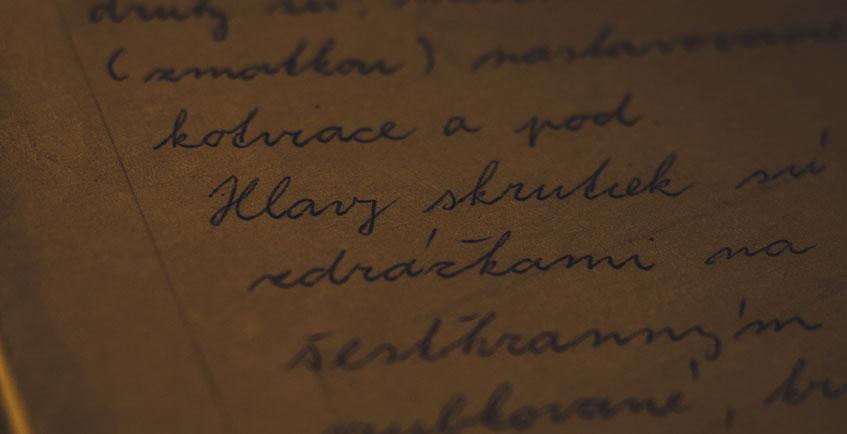 druhy sú:
(zmatkou) nastavovacie
kotviace a pod.
Hlavy skrutiek sú
zdrážkami na
šesťhranným
vrubkované,